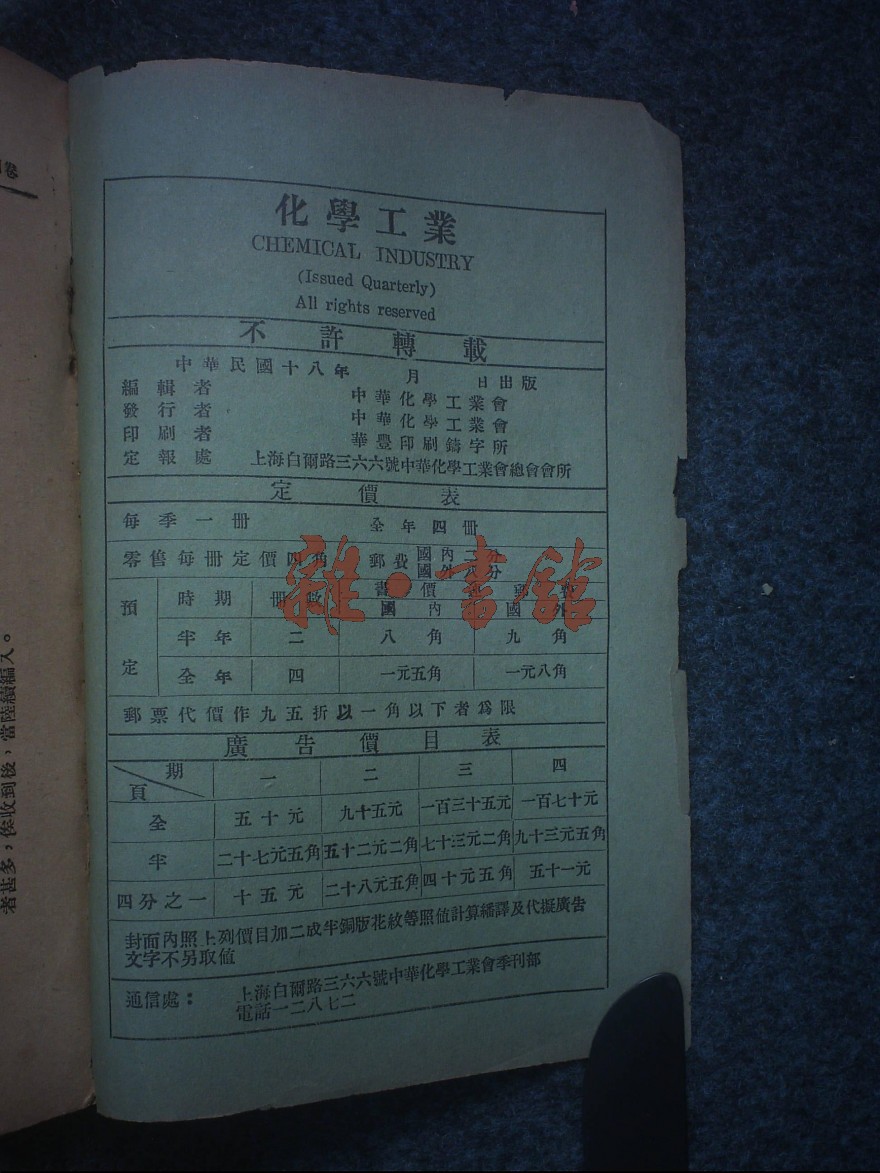 化學工業
CHEMICAL INDUSTRY
(Issued Quarterly)
All rights reserved
不許轉載
中華民國十八年 月 日出版
編輯者 中華化學工業會
發行者 中華化學工業會
印刷者 華豐印刷鑄字所
定報處 上海白爾路三六六號中華化學工業會總會會所
定價表
每季一冊 全年四冊
零售每冊定價四角 郵費 國內二分
國外八分
預定 時期 冊數 書價連郵費
國內 國外
半年 二 八角 九角
全年 四 一元五角 一元八角
郵票代價作九五折以一角以下者為限
廣告價目表
頁 期 一 二 三 四
全 五十元 九十五元 一百三十五元 一百七十元
半 二十七元五角 五十二元二角 七十三元二角 九十三元五角
四分之一 十五元 二十八元五角 四十元五角 五十一元
封面內照上列價目加二成半銅版花紋等照值計算繙譯及代擬廣告
文字不另取值
通信處：上海白爾路三六六號中華化學工業會季刊部
電話一二八七二
卷
者甚多，俟收到後，當陸續編入。
雜·書館